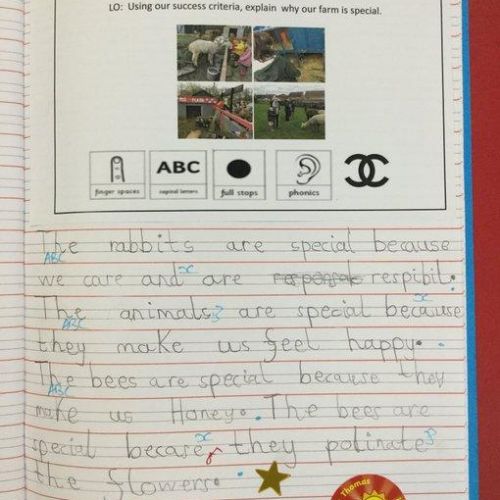 LO: Using our success criteria, explain why our farm is special.
ABC
finger spaces capital letters full stops phonics
The rabbits are special because
ABC
we care and are respibil.
The animals are special because
ABC
they make us feel happy.
The bees are special because they
ABC
make us Honey. The bees are
special becare they polinate
the flowers.
Thomas